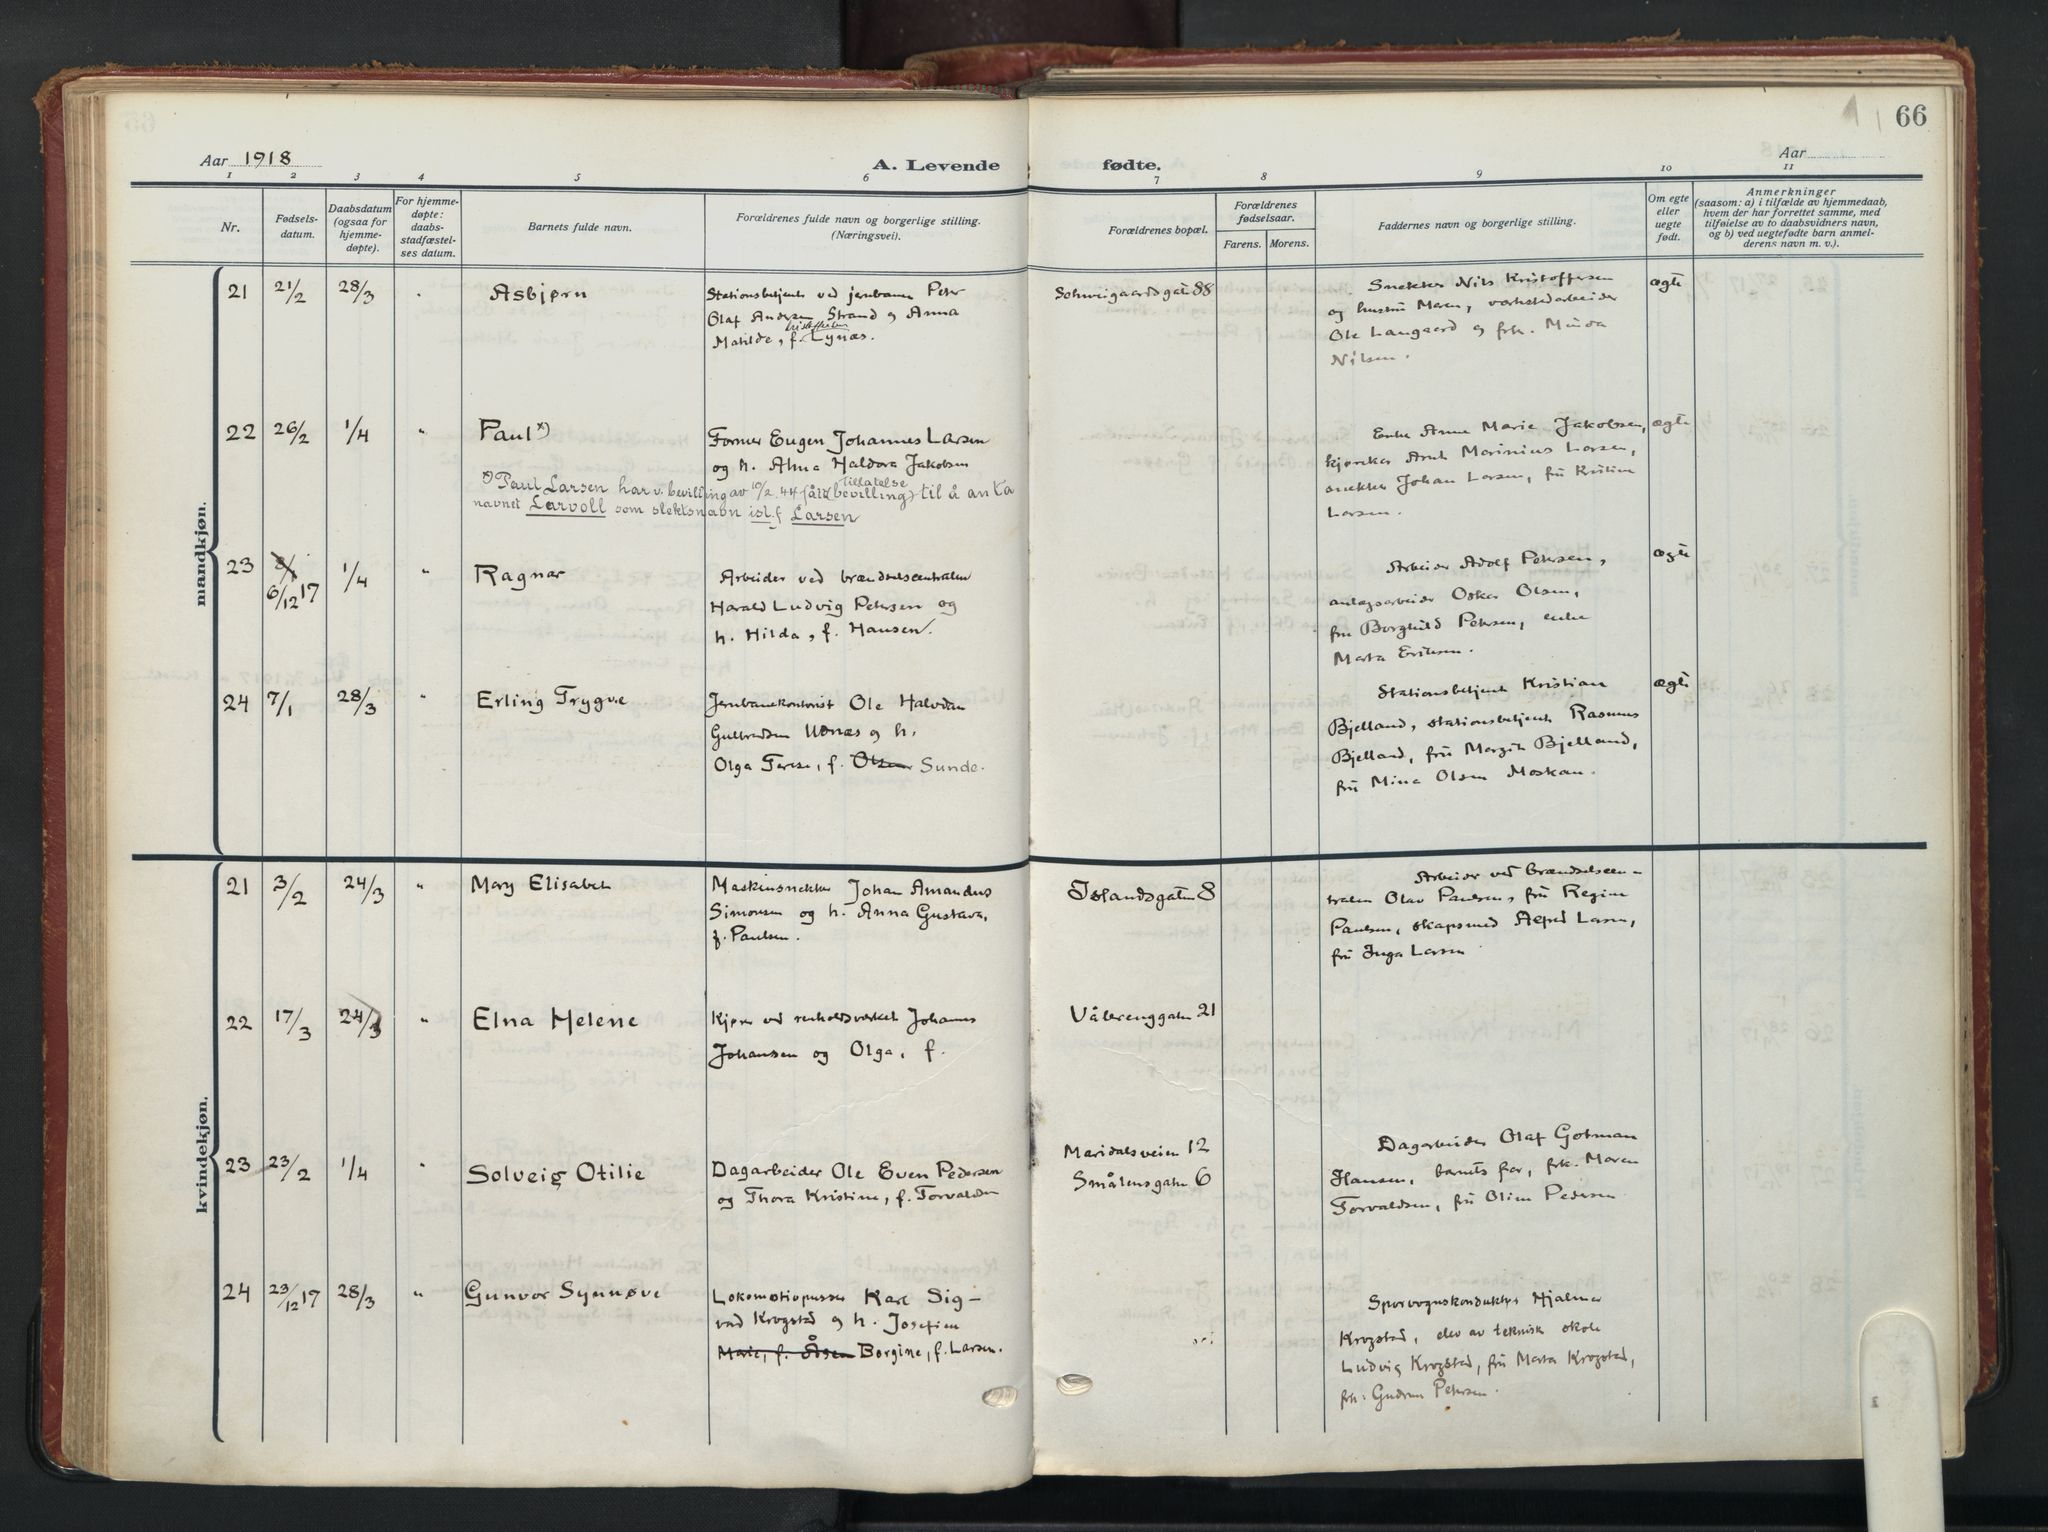 66
Aar 1918
A. Levende fødte.
Aar
1 2 3 4 5 6 7 8 9 10 11
Nr.
Fødsels-
datum.
Daabsdatum
(ogsaa for
hjemme-
døpte).
For hjemme-
døpte:
daabs-
stadfæstel-
ses datum.
Barnets fulde navn.
Forældrenes fulde navn og borgerlige stilling.
(Næringsvei).
Forældrenes bopæl.
Forældrenes
fødselsaar.
Farens. Morens.
Faddernes navn og borgerlige stilling.
Om egte
eller
uegte
født.
Anmerkninger
(saasom: a) i tilfælde av hjemmedaab,
hvem der har forrettet samme, med
tilføielse av to daabsvidners navn,
og b) ved uegtefødte barn anmel-
derens navn m. v.).
mandkjøn.
21 21/2 28/3 " Asbjørn
Stationsbetjent ved jernbanen Peter
Olaf Andersen Strand og Anna
Matilde, f. Lynæs.
Schweigaardsgaten 88
Snekker Nils Kristoffersen
og hustru Maren, verkstedarbeider
Ole Langaard og frk. Minda
Nilsen.
ægte
22 26/2 1/4 " Paul x)
Former Eugen Johannes Larsen
og h. Alma Haldora Jakobsen
x) Paul Larsen har v. bevilling av 10/2.44 (bevilling) tillatelse til å anta
navnet Larvoll som slektsnavn ist.f Larsen
Enke Anne Marie Jakobsen,
kjørekar Arnt Marinius Larsen,
snekker Johan Larsen, fru Kristine
Larsen.
ægte
23 6/12 17 1/4 " Ragnar
Arbeider ved brændselscentralen
Harald Ludvig Petersen og
h. Hilda, f. Hansen.
Arbeider Adolf Petersen,
anlægsarbeider Oskar Olsen,
fru Borghild Petersen, enke
Marta Eriksen.
ægte
24 7/1 28/3 " Erling Trygve
Jernbanekontorist Ole Halvdan
Gulbrandsen Udnæs og h.
Olga Terese, f. Olsen Sunde.
Stationsbetjent Kristian
Bjelland, stationsbetjent Rasmus
Bjelland, fru Margit Bjelland,
fru Mina Olsen Moskau.
ægte
kvindekjøn.
21 3/2 24/3 " Mary Elisabet
Maskinsnekker Johan Amandus
Simonsen og h. Anna Gustava,
f. Paulsen.
Islandsgaten 8
Arbeider ved brændselscen-
tralen Olav Paulsen, fru Regine
Paulsen, skapsmed Alfred Larsen,
fru Inga Larsen
22 17/3 24/3 " Elna Helene
Kjører ved renholdsverket Johannes
Johansen og Olga, f.
Vålerenggaten 21
23 23/2 1/4 " Solveig Otilie
Dagarbeider Ole Even Pedersen
og Thora Kristine, f. Torvaldsen
Maridalsveien 12
Smålensgaten 6
Dagarbeider Olaf Gotman
Hansen, barnets far, frk. Maren
Torvaldsen, fru Oline Pedersen
24 23/12 17 28/3 " Gunvor Synnøve
Lokomotivpusser Karl Sig-
vad Krogstad og h. Josefine
Marie, f. Åsen Borgine, f. Larsen.
Sporvognskonduktør Hjalmar
Krogstad, elev av teknisk skole
Ludvig Krogstad, fru Marta Krogstad,
frk. Gudrun Petersen.